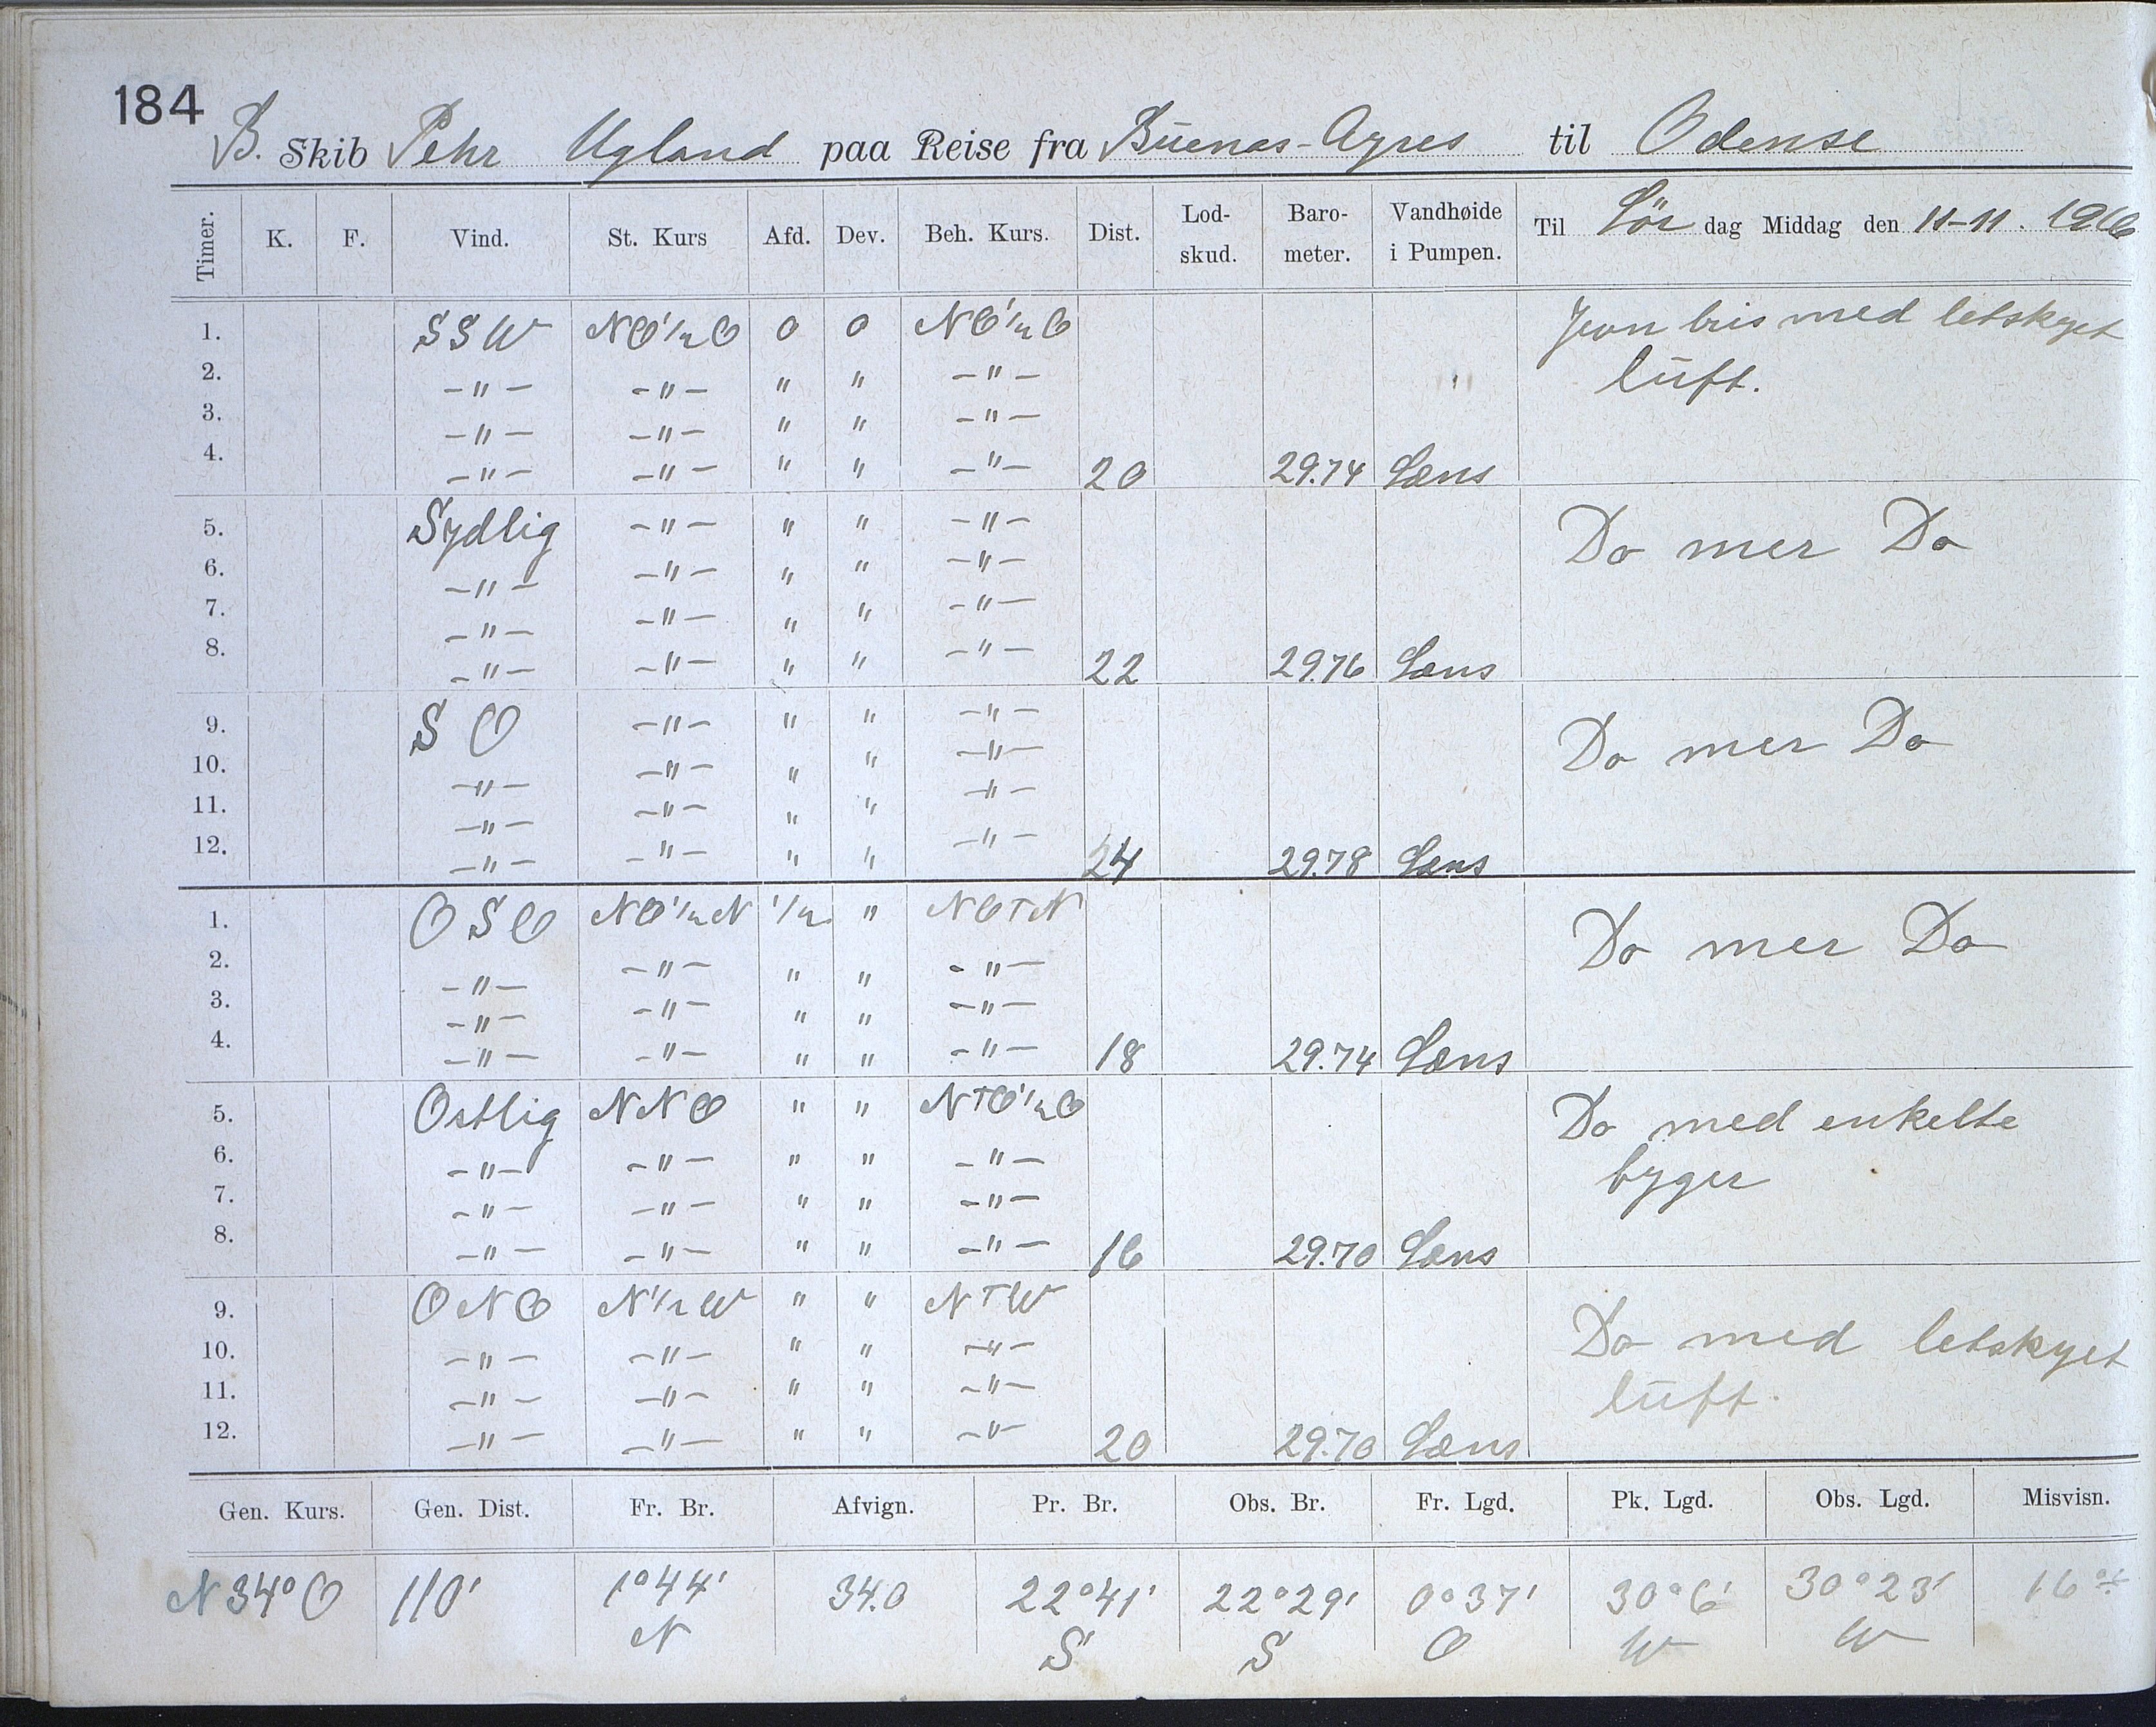 184
B. Skib Pehr Ugland paa Reise fra Buenos-Ayres til Odense
Timer. K. F. Vind. St. Kurs Afd. Dev. Beh. Kurs. Dist. Lod-skud. Baro-meter. Vandhøide i Pumpen. Til Lör dag Middag den 11-11. 1916
1. SSW NO½O 0 0 NO½O Jevn bris med letskyet
2. -"- -"- " " -"- luft.
3. -"- -"- " " -"-
4. -"- -"- " " -"- 20 29.74 Læns
5. Sydlig -"- " " -"- Do mer Do
6. -"- -"- " " -"-
7. -"- -"- " " -"-
8. -"- -"- " " -"- 22 29.76 Læns
9. SO -"- " " -"- Do mer Do
10. -"- -"- " " -"-
11. -"- -"- " " -"-
12. -"- -"- " " -"- 24 29.78 Læns
1. OSO NO½N ½ " NOTN Do mer Do
2. -"- -"- " " -"-
3. -"- -"- " " -"-
4. -"- -"- " " -"- 18 29.74 Læns
5. Ostlig NNO " " NTO½O Do med enkelte
6. -"- -"- " " -"- byger
7. -"- -"- " " -"-
8. -"- -"- " " -"- 16 29.70 Læns
9. ONO N½W " " NTW
10. -"- -"- " " -"- Do med letskyet
11. -"- -"- " " -"- luft.
12. -"- -"- " " -"- 20 29.70 Læns
Gen. Kurs. Gen. Dist. Fr. Br. Afvign. Pr. Br. Obs. Br. Fr. Lgd. Pk. Lgd. Obs. Lgd. Misvisn.
N34°O 110' 1°44' 34.0 22°41' 22°29' 0°37' 30°6' 30°23' 16°
N S S O W W